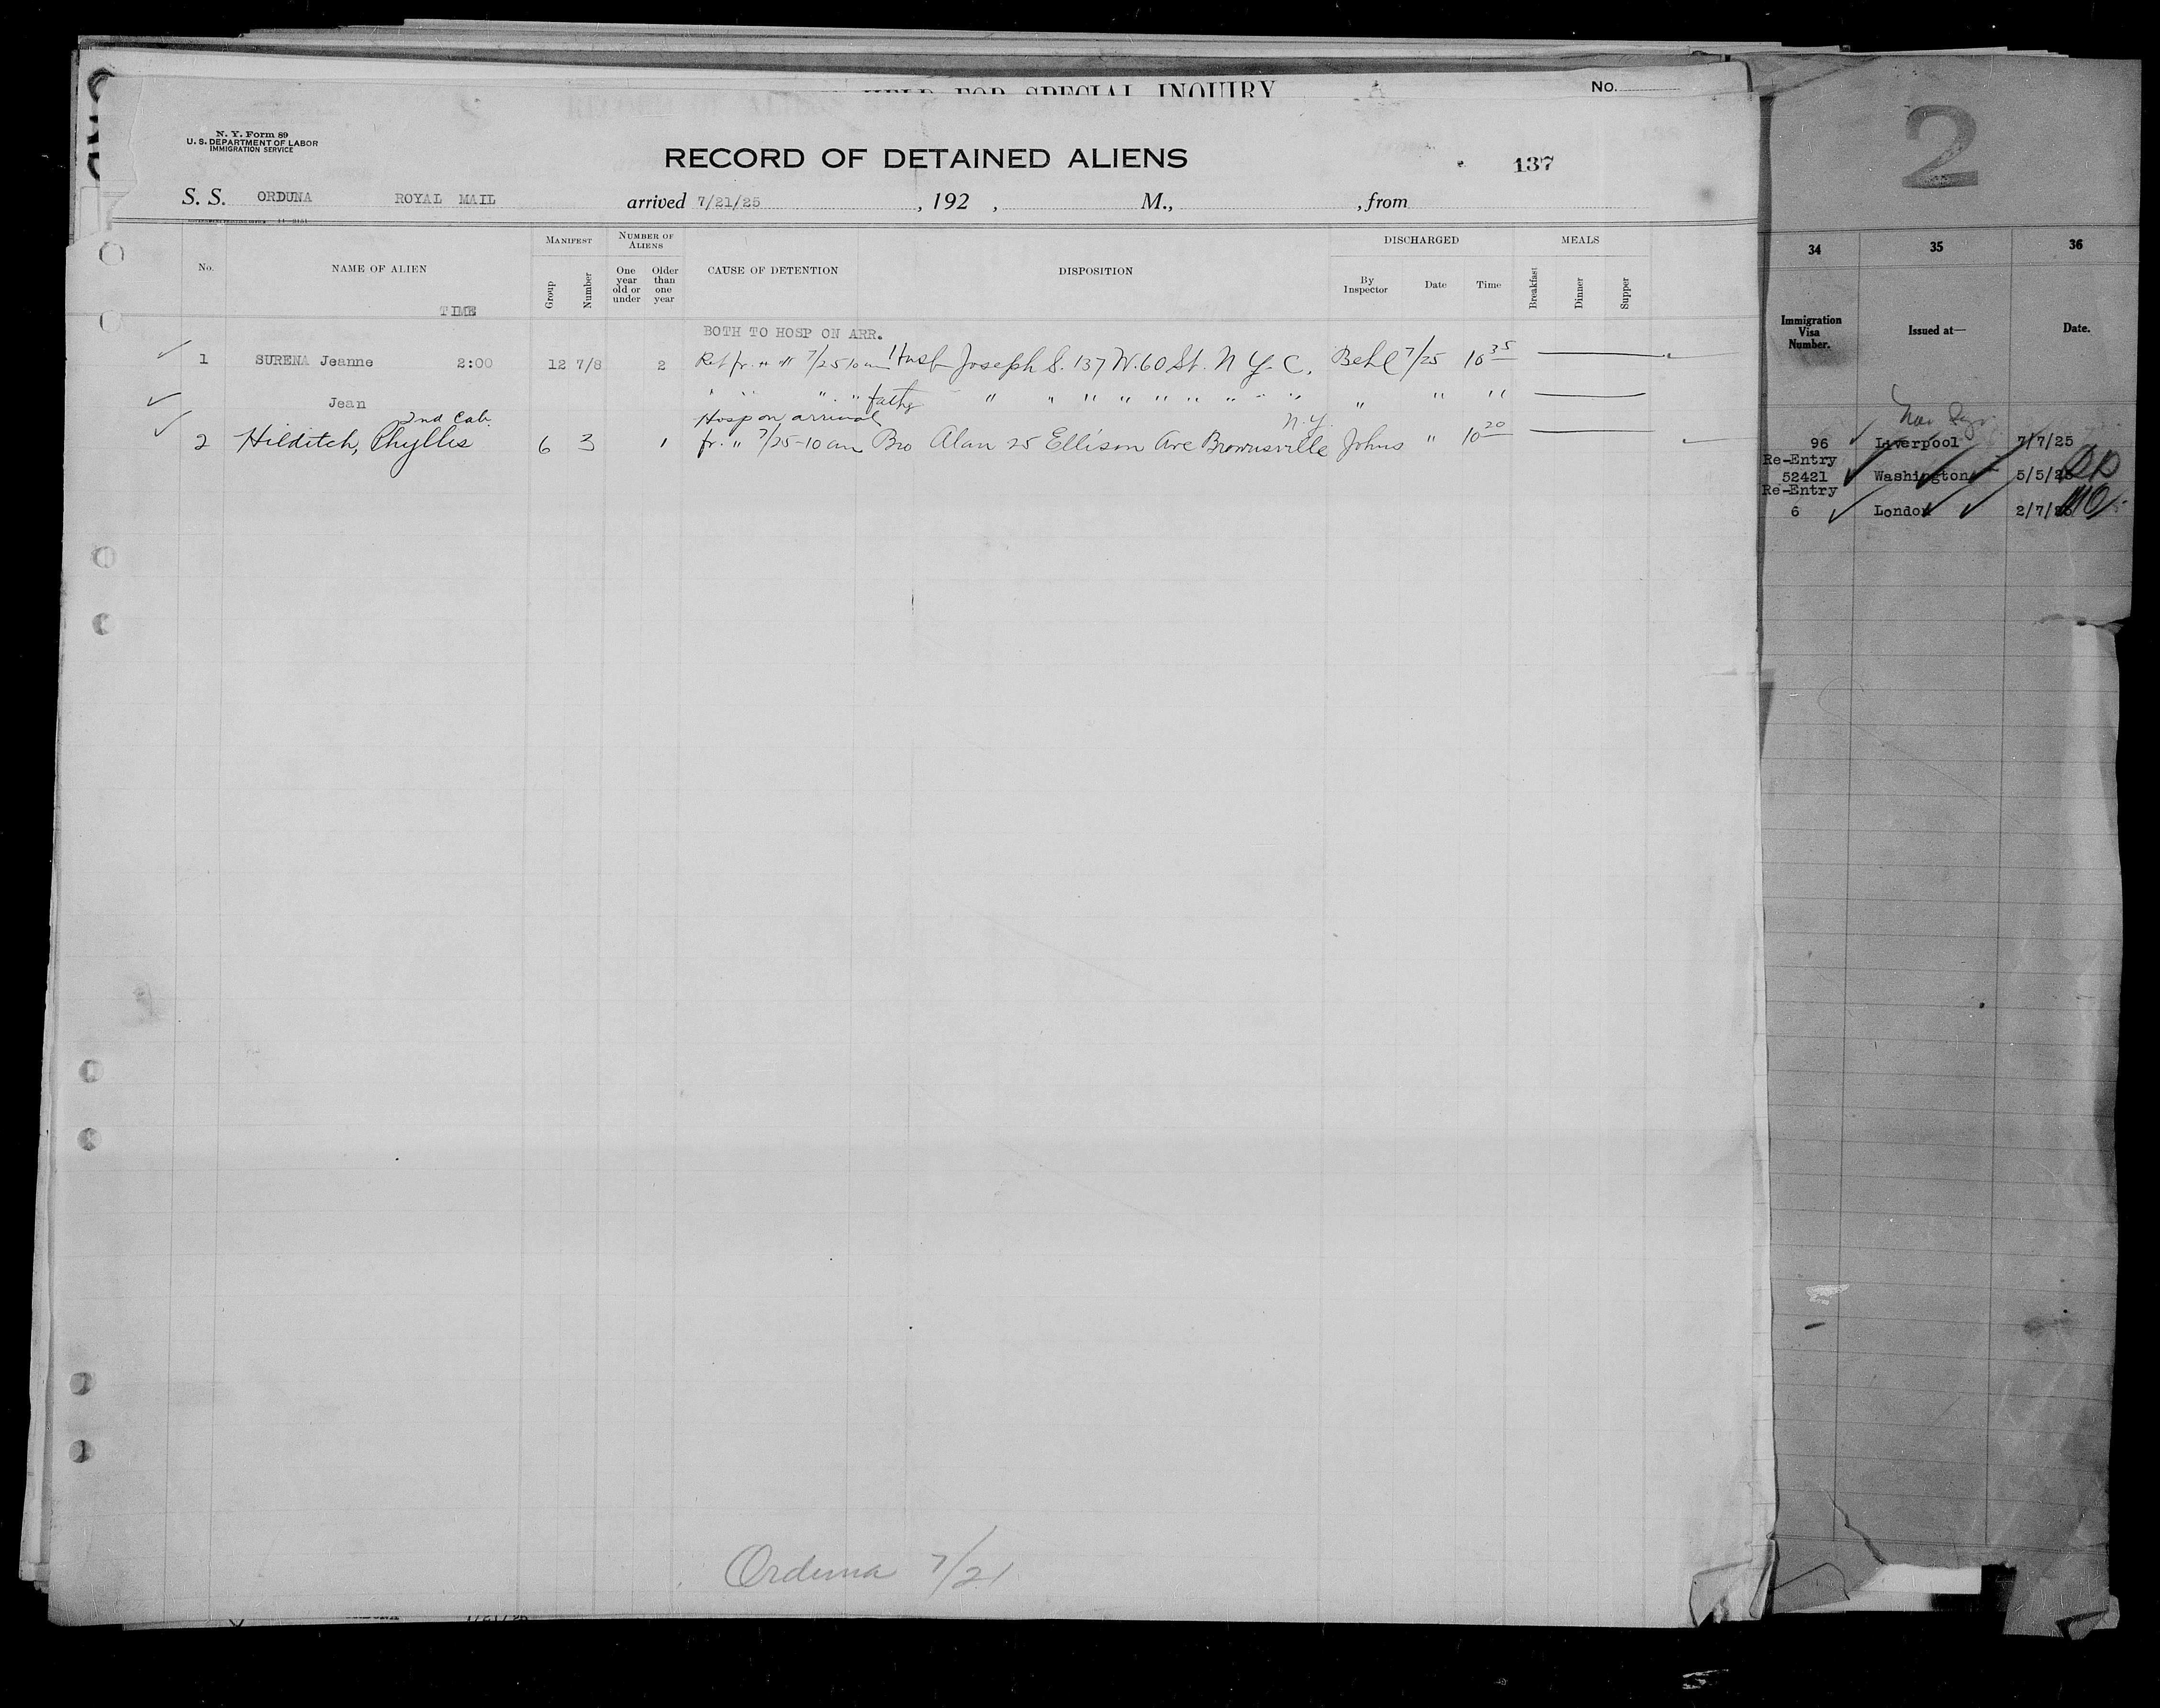 HELD FOR SPECIAL INQUIRY
No.
N. Y. Form 89
U. S. DEPARTMENT OF LABOR
IMMIGRATION SERVICE
RECORD OF DETAINED ALIENS
137
S. S. ORDUNA ROYAL MAIL arrived 7/21/25, 192 , M., , from
No. NAME OF ALIEN MANIFEST NUMBER OF ALIENS CAUSE OF DETENTION DISPOSITION DISCHARGED MEALS
Group Number One year old or under Older than one year By Inspector Date Time Breakfast Dinner Supper
TIME
BOTH TO HOSP ON ARR.
1 SURENA Jeanne 2:00 12 7/8 2 Ret fr. " " 7/25 10 am Husb Joseph S. 137 W. 60 St. N Y. C. Behl 7/25 10 35
Jean " " " " father " " " " " " " " " " " "
2nd Cab. Hosp on arrival N.Y.
2 Hilditch, Phyllis 6 3 1 fr. " 7/25-10 am Bro Alan 25 Ellison Ave Brownsville Johns " 10 20
Orduna 7/21
2
34 35 36
Immigration Visa Number. Issued at— Date.
96 Liverpool 7/7/25
Re-Entry
52421 Washington 5/5/25
Re-Entry
6 London 2/7/25